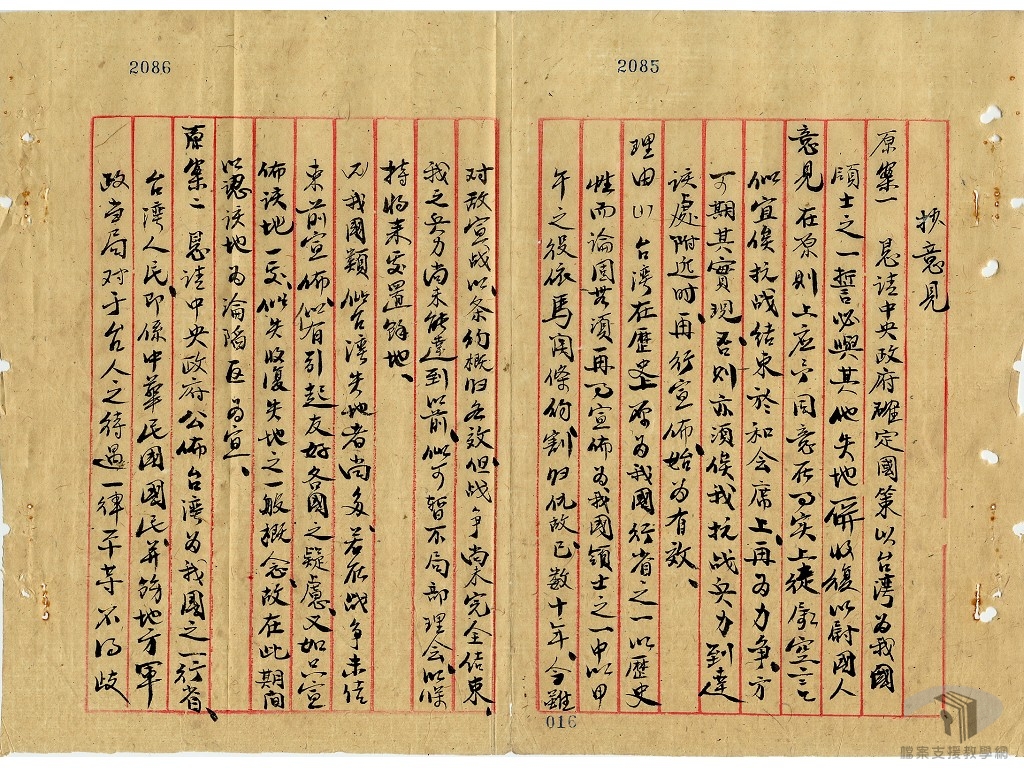 2085
抄意見
原案一 懇請中央政府確定國策以台灣為我國
領土之一誓必與其他失地一併收復以慰國人
意見 在原則上應予同意在事實上徒託空言
似宜俟抗战结束於和会席上、再為力争、方
可期其實現、否則亦須俟我抗战兵力到達
该處附近时、再行宣佈、始為有效、
理由(1) 台灣在歷史上原為我國行省之一以歷史
性而論固無須再事宣佈為我國領土之一中以甲
午之役依馬関條約割归仇敌、已數十年、今雖
016
2086
对敌宣战、以条約概归无效、但战争尚未完全结束、
我之兵力尚未能達到以前、似可暫不局部理会、以保
持将来处置餘地、
又我國類似台灣失地者尚多、若在战争未结
束前宣佈、似有引起友好各國之疑慮、又如只宣
佈该地一处、似失收復失地之一般概念、故在此期间
以認该地為淪陷区為宜、
原案二 懇请中央政府公佈台灣為我國之一行省、
台灣人民、即係中華民國國民、并飭地方軍
政当局对于台人之待遇一律平等不得歧
檔案支援教學網